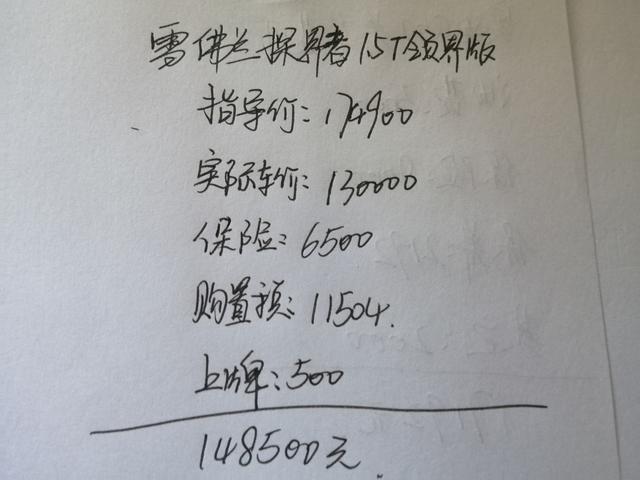 雪佛兰探界者15T领界版
指导价:174900
实际车价:130000
保险:6500
购置税:11504.
上牌:500
148500元.